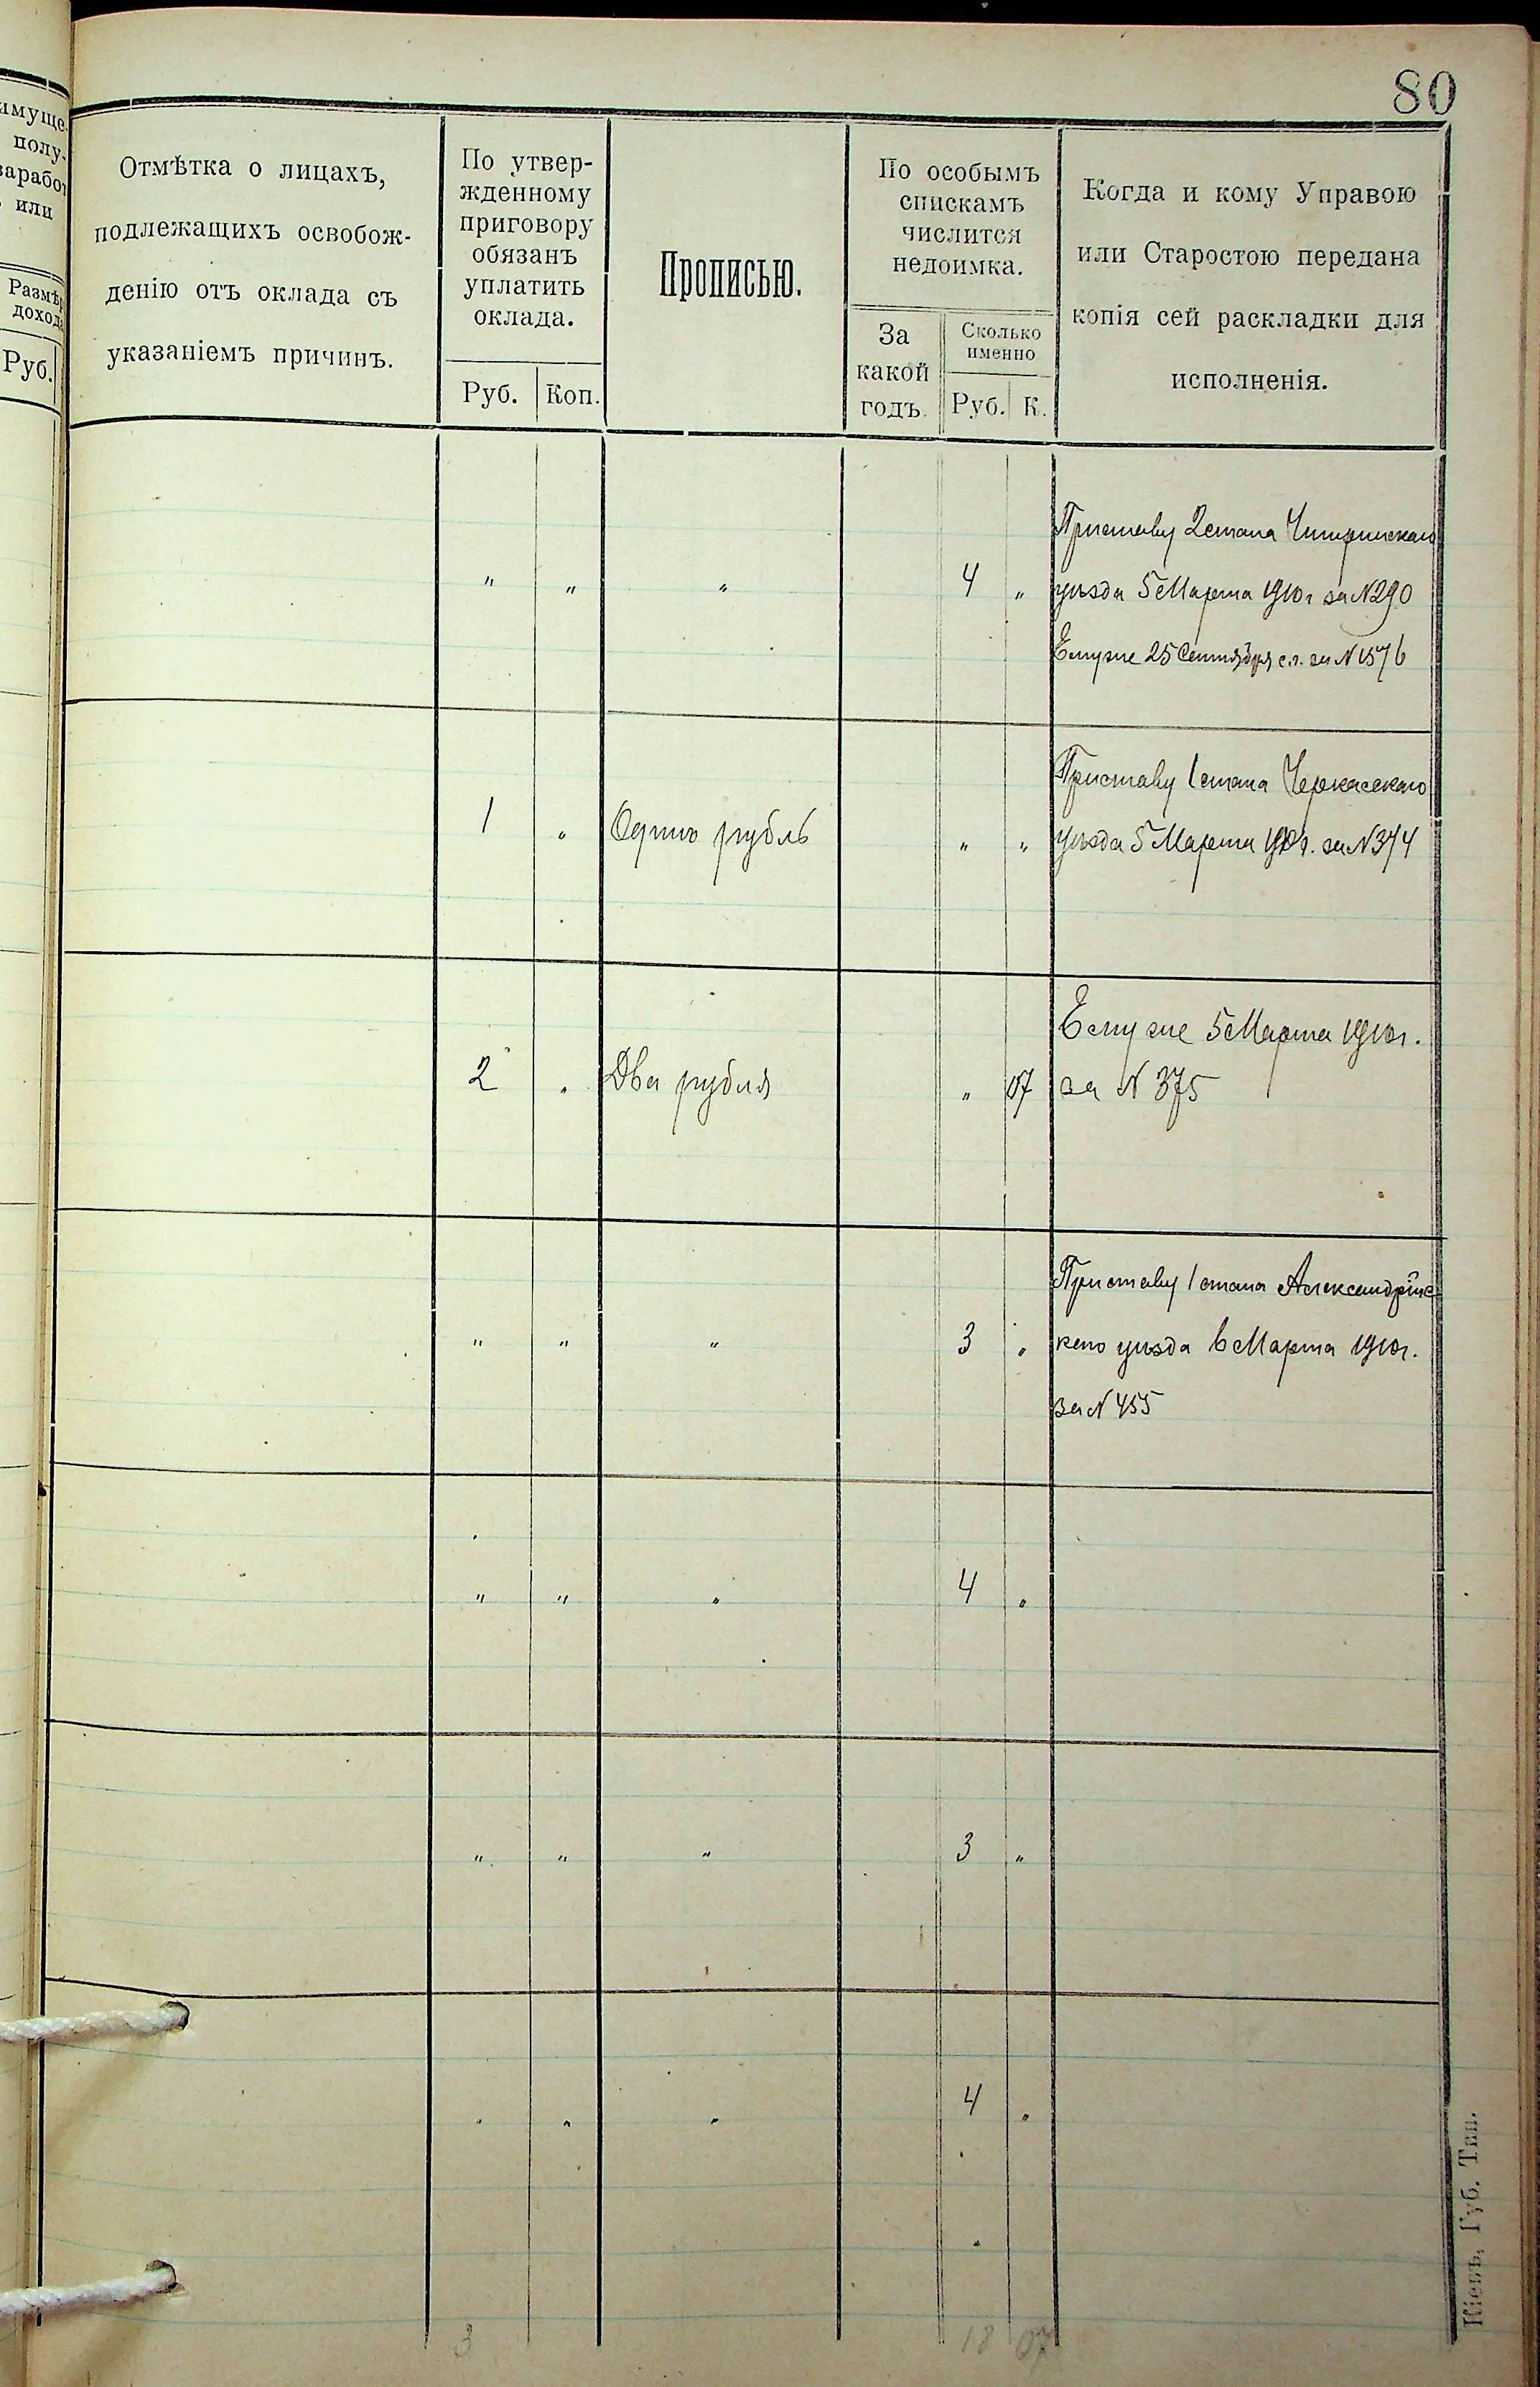 80
имуще-
полу-
заработ
или
Размѣр
дохода
Руб.
Отмѣтка о лицахъ,
подлежащихъ освобож-
денію отъ оклада съ
указаніемъ причинъ.
По утвер-
жденному
приговору
обязанъ
уплатить
оклада.
Руб. Коп.
Прописью.
По особымъ
спискамъ
числится
недоимка.
За
какой
годъ.
Сколько
именно
Руб. К.
Когда и кому Управою
или Старостою передана
копія сей раскладки для
исполненія.
" " " 4 "
Приставу 2 стана Чигиринскаго
уѣзда 5 Марта 1910г за № 290
Ему же 25 Сентября с.г. за № 1576
1 " Одинъ рубль " "
Приставу 1 стана Черкасскаго
уѣзда 5 Марта 1910г. за № 374
2 " Два рубля " 07
Ему же 5 Марта 1910г.
за № 375
" " " 3 "
Приставу 1 стана Александрійс
каго уѣзда 6 Марта 1910г.
за № 455
" " " 4 "
" " " 3 "
" " " 4 "
3 18 07
Кіевъ, Губ. Тип.